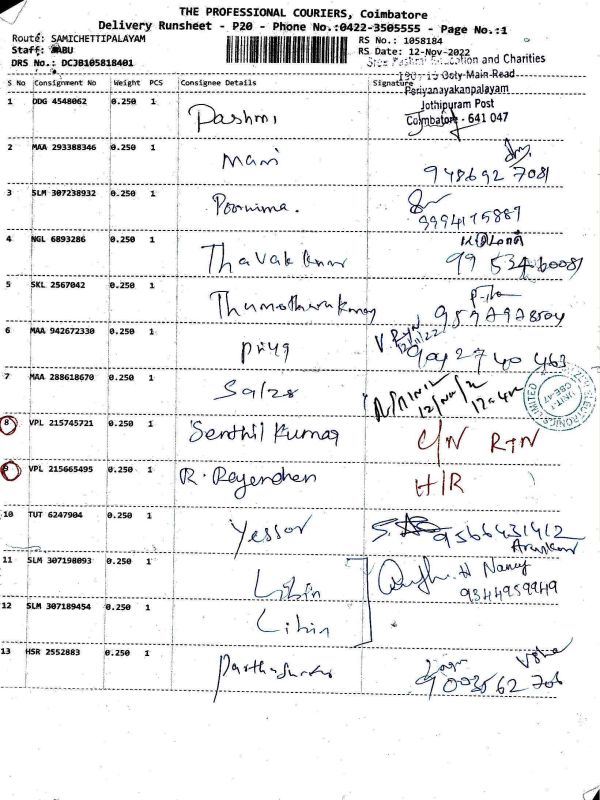 THE PROFESSIONAL COURIERS, Coimbatore
Delivery Runsheet - P20 - Phone No.:0422-3505555 - Page No.:1
Route: SAMICHETTIPALAYAM
RS No.: 1058184
Staff: BABU
RS Date: 12-Nov-2022
DRS No.: DCJB105818401
Education and Charities
190, 15 Ooty Main Road
Periyanayakanpalayam
Jothipuram Post
Coimbatore - 641 047
S No Consignment No Weight PCS Consignee Details Signature
1 DDG 4548062 0.250 1 Pashmi
2 MAA 293388346 0.250 1 Mani
948692 7081
3 SLM 307238932 0.250 1 Poornima.
9994175887
4 NGL 6893286 0.250 1 Thavakkumar
99 534 60081
5 SKL 2567042 0.250 1
6 MAA 942672330 0.250 1 Priya
12/11/22
904 27 40 463
7 MAA 288618670 0.250 1 Sales
8 VPL 215745721 0.250 1 Senthil Kumar C/N RTN
9 VPL 215665495 0.250 1 R. Rajendran H/R
10 TUT 6247904 0.250 1 Yessor
9566431412
Arunkumar
11 SLM 307198093 0.250 1 Libin
H Nancy
9344959949
12 SLM 307189454 0.250 1 Libin
13 HSR 2552883 0.250 1
Usha
9003562706